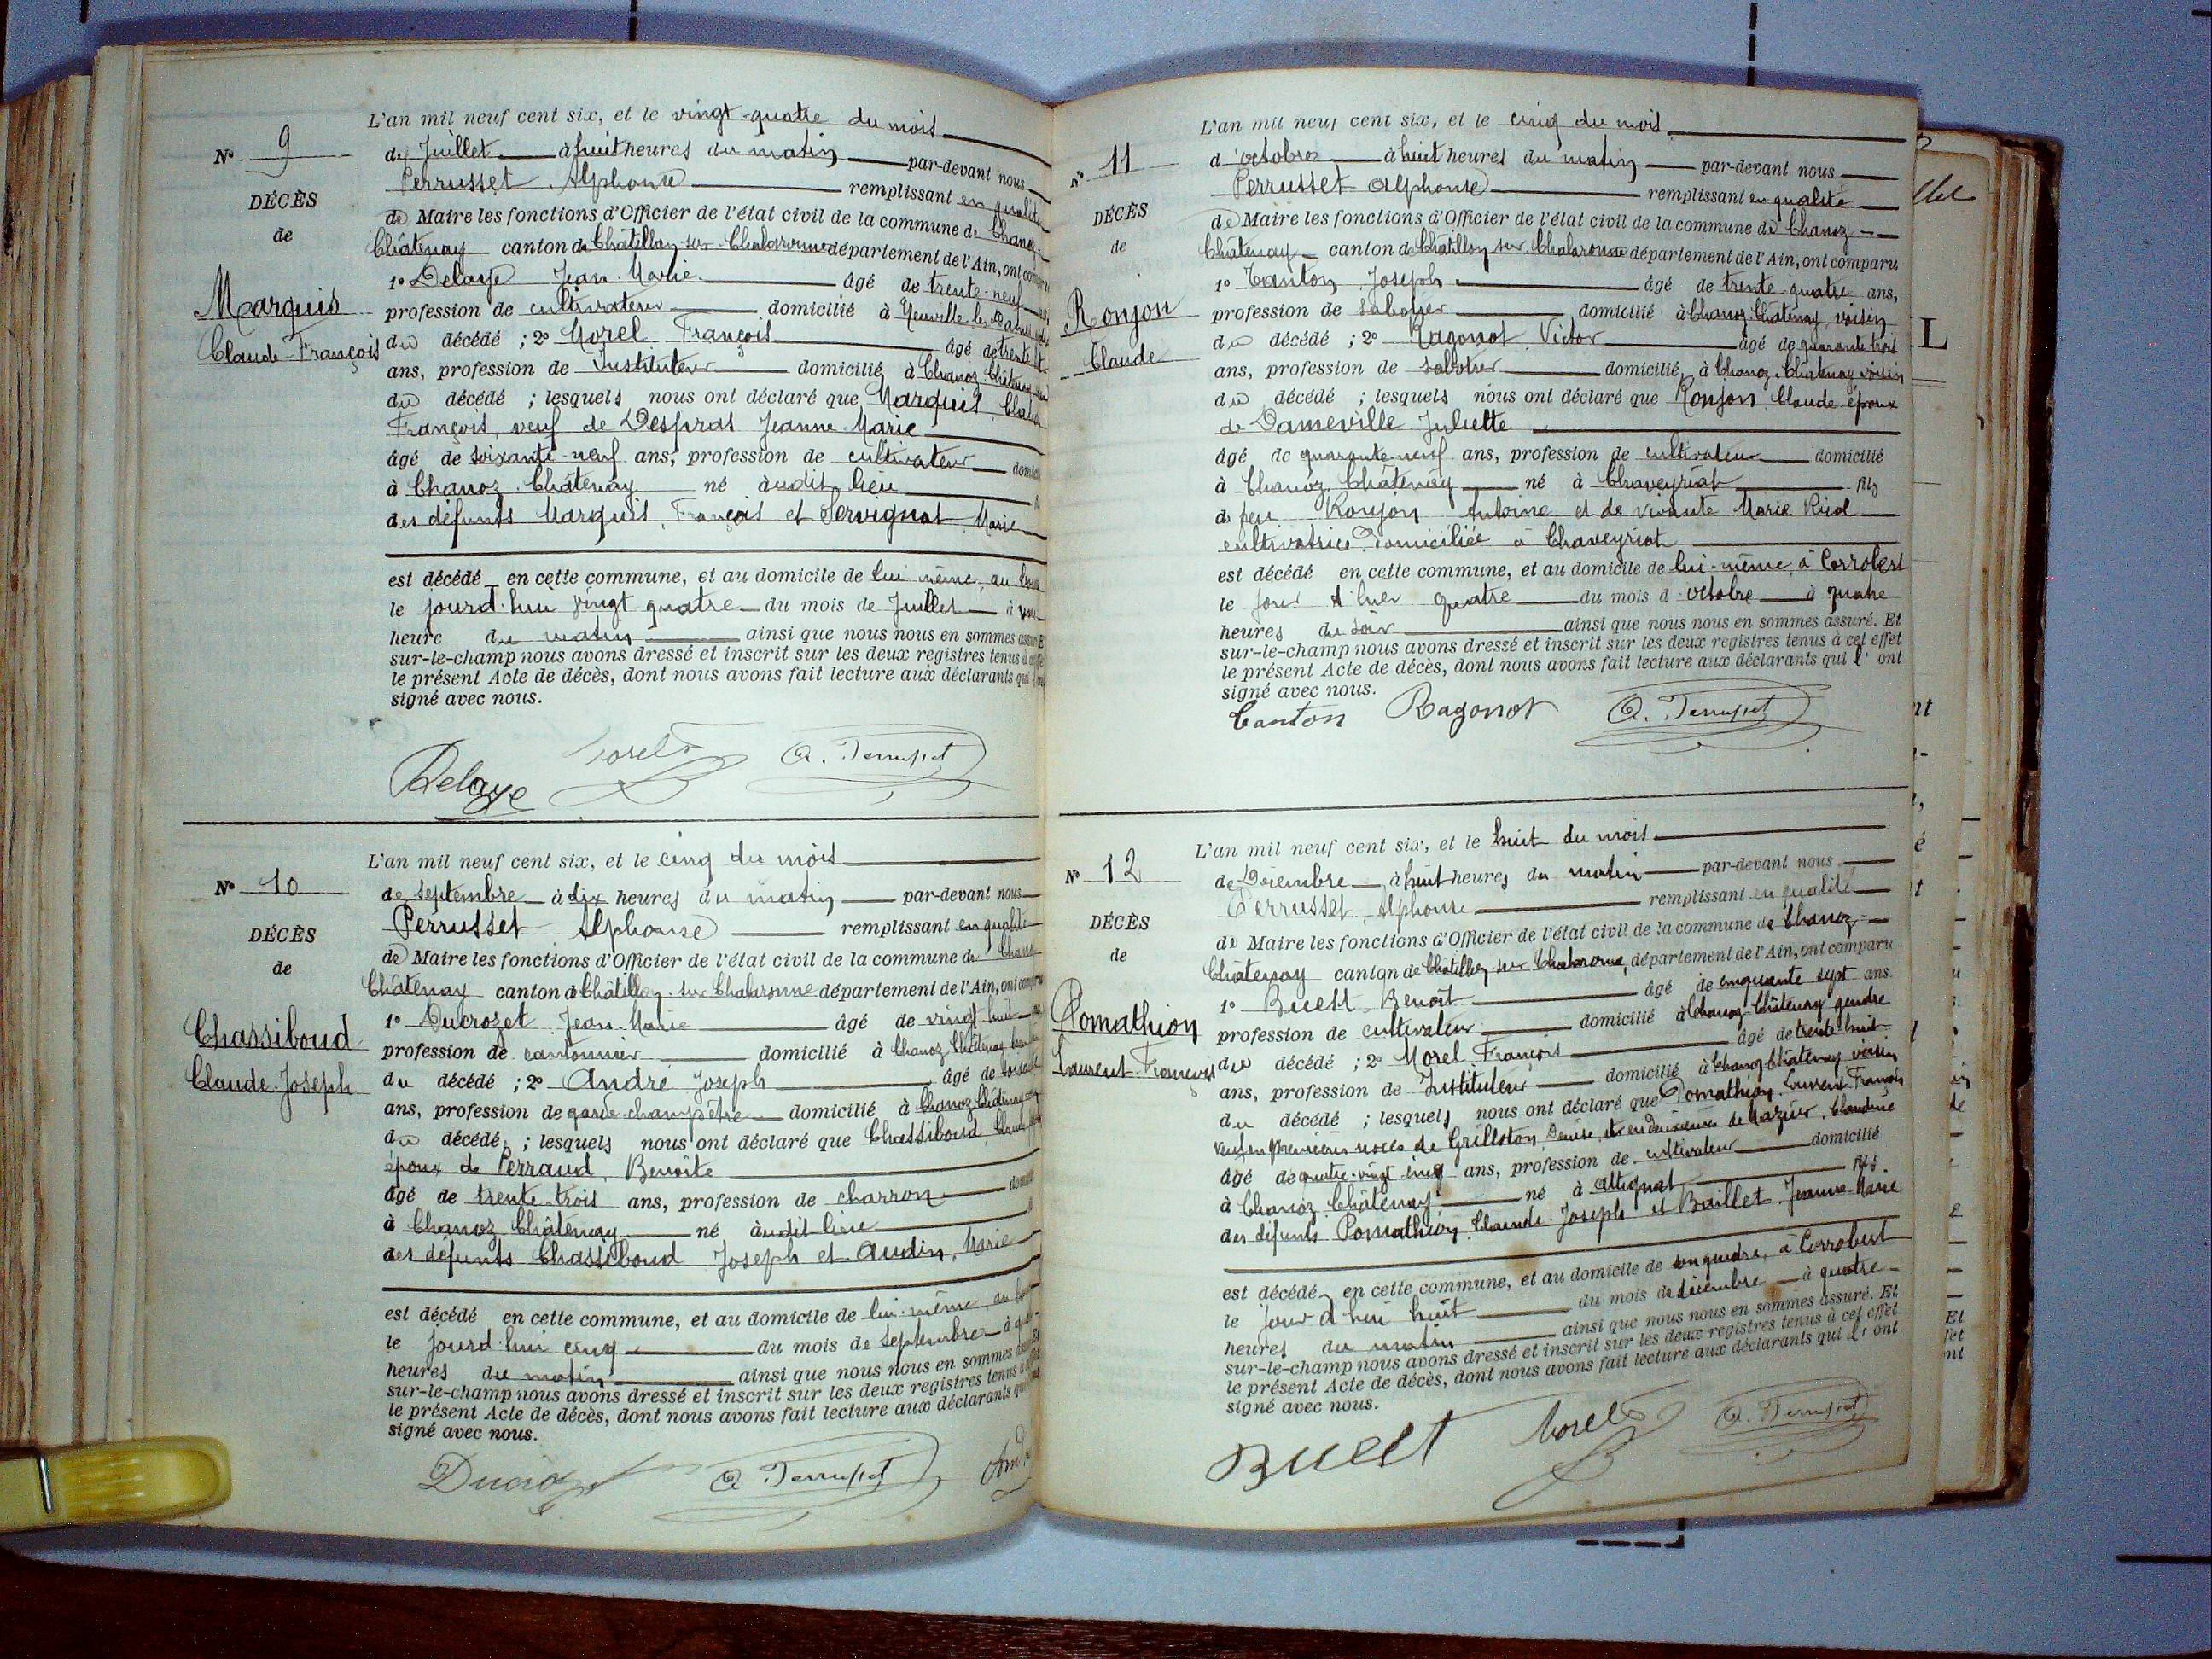 N° 9
DÉCÈS
de
Marquis
Claude-François
L'an mil neuf cent six, et le vingt-quatre du mois
de Juillet à huit heures du matin par-devant nous
Perrusset Alphonse remplissant en qualité
de Maire les fonctions d'Officier de l'état civil de la commune de Chanoz
Châtenay canton de Châtillon-sur-Chalaronne département de l'Ain, ont comparu
1° Delaye Jean-Marie âgé de trente-neuf
profession de cultivateur domicilié à Neuville-les-Dames
du décédé ; 2° Morel François âgé de trente
ans, profession de Instituteur domicilié à Chanoz-Châtenay
du décédé ; lesquels nous ont déclaré que Marquis Claude
François, veuf de Despras Jeanne-Marie
âgé de soixante-neuf ans, profession de cultivateur
à Chanoz-Châtenay né audit lieu
des défunts Marquis, François et Servignat Marie
est décédé en cette commune, et au domicile de lui même, au
le jourd'hui vingt quatre du mois de Juillet à une
heure du matin ainsi que nous nous en sommes assuré
sur-le-champ nous avons dressé et inscrit sur les deux registres tenus à
le présent Acte de décès, dont nous avons fait lecture aux déclarants qui
signé avec nous.
Delaye Morel A. Perrusset
N° 10
DÉCÈS
de
Chassiboud
Claude-Joseph
L'an mil neuf cent six, et le cinq du mois
de septembre à dix heures du matin par-devant nous
Perrusset Alphonse remplissant en qualité
de Maire les fonctions d'Officier de l'état civil de la commune de Chanoz
Châtenay canton de Châtillon-sur-Chalaronne département de l'Ain, ont comparu
1° Ducrozet Jean-Marie âgé de vingt-huit
profession de cantonnier domicilié à Chanoz-Châtenay
du décédé ; 2° André Joseph âgé de
ans, profession de garde-champêtre domicilié à Chanoz-Châtenay
du décédé ; lesquels nous ont déclaré que Chassiboud, Claude
époux de Perraud, Benoîte
âgé de trente-trois ans, profession de charron
à Chanoz-Châtenay né audit lieu
des défunts Chassiboud Joseph et Audin, Marie
est décédé en cette commune, et au domicile de lui-même au
le jourd'hui cinq du mois de septembre à
heures du matin ainsi que nous nous en sommes
sur-le-champ nous avons dressé et inscrit sur les deux registres tenus à
le présent Acte de décès, dont nous avons fait lecture aux déclarants
signé avec nous.
Ducrozet A. Perrusset André
N° 11
DÉCÈS
de
Ronjon
Claude
L'an mil neuf cent six, et le cinq du mois
d'octobre à huit heures du matin par-devant nous
Perrusset Alphonse remplissant en qualité
de Maire les fonctions d'Officier de l'état civil de la commune de Chanoz
Châtenay canton de Châtillon sur Chalaronne département de l'Ain, ont comparu
1° Canton Joseph âgé de trente-quatre ans,
profession de sabotier domicilié à Chanoz-Châtenay, voisin
du décédé ; 2° Ragonot Victor âgé de quarante trois
ans, profession de sabotier domicilié à Chanoz-Châtenay voisin
du décédé ; lesquels nous ont déclaré que Ronjon Claude époux
de Dameville Juliette
âgé de quarante neuf ans, profession de cultivateur domicilié
à Chanoz Châtenay né à Chaveyriat fils
de feu Ronjon Antoine et de vivante Marie
cultivatrice domiciliée à Chaveyriat
est décédé en cette commune, et au domicile de lui-même, à Corrobert
le jour d'hier quatre du mois d'octobre à quatre
heures du soir ainsi que nous nous en sommes assuré. Et
sur-le-champ nous avons dressé et inscrit sur les deux registres tenus à cet effet
le présent Acte de décès, dont nous avons fait lecture aux déclarants qui l'ont
signé avec nous.
Canton Ragonot A. Perrusset
N° 12
DÉCÈS
de
Pomathion
Laurent-François
L'an mil neuf cent six, et le huit du mois
de Décembre à huit heures du matin par-devant nous
Perrusset Alphonse remplissant en qualité
de Maire les fonctions d'Officier de l'état civil de la commune de Chanoz
Châtenay canton de Châtillon sur Chalaronne, département de l'Ain, ont comparu
1° Buest Benoît âgé de cinquante sept ans
profession de cultivateur domicilié à Chanoz-Châtenay gendre
du décédé ; 2° Morel François âgé de trente-huit
ans, profession de Instituteur domicilié à Chanoz-Châtenay voisin
du décédé ; lesquels nous ont déclaré que Pomathion, Laurent-François
veuf en premières noces de Grilloton Denise, et en deuxièmes de Mazuir, Claudine
âgé de quatre-vingt-cinq ans, profession de cultivateur domicilié
à Chanoz-Châtenay né à Attignat fils
des défunts Pomathion, Claude-Joseph et Baillet Jeanne-Marie
est décédé en cette commune, et au domicile de son gendre, à Corrobert
le jour d'hui huit du mois de décembre à quatre
heures du matin ainsi que nous nous en sommes assuré. Et
sur-le-champ nous avons dressé et inscrit sur les deux registres tenus à cet effet
le présent Acte de décès, dont nous avons fait lecture aux déclarants qui l'ont
signé avec nous.
Buest Morel A. Perrusset